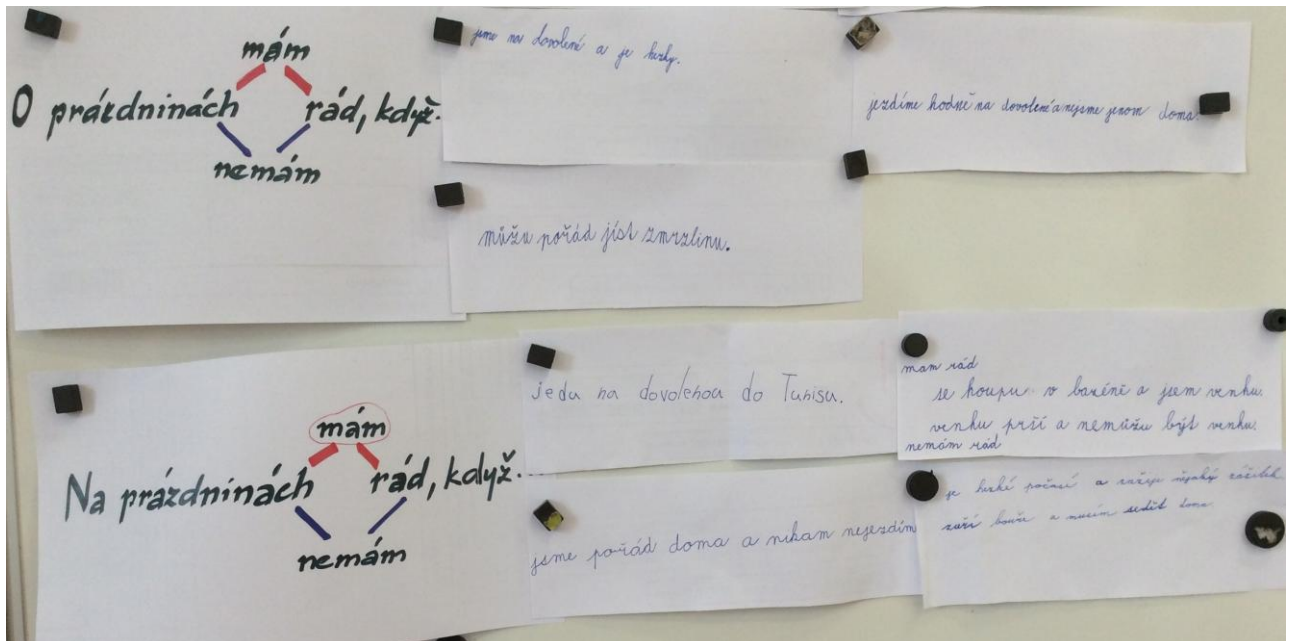 mám
O prázdninách rád, když.
nemám
jsme na dovolené a je hezky.
jezdíme hodně na dovolená a nejsme jenom doma.
můžu pořád jíst zmrzlinu.
mám
Na prázdninách rád, když...
nemám
jedu na dovolenou do Tunisu.
mam rád
se koupu v bazéně a jsem venku.
venku prší a nemůžu být venku.
nemám rád
jsme pořád doma a nikam nejezdím
je hezké počasí a zažiju nějaký zážitek.
zuří bouře a musím sedět doma